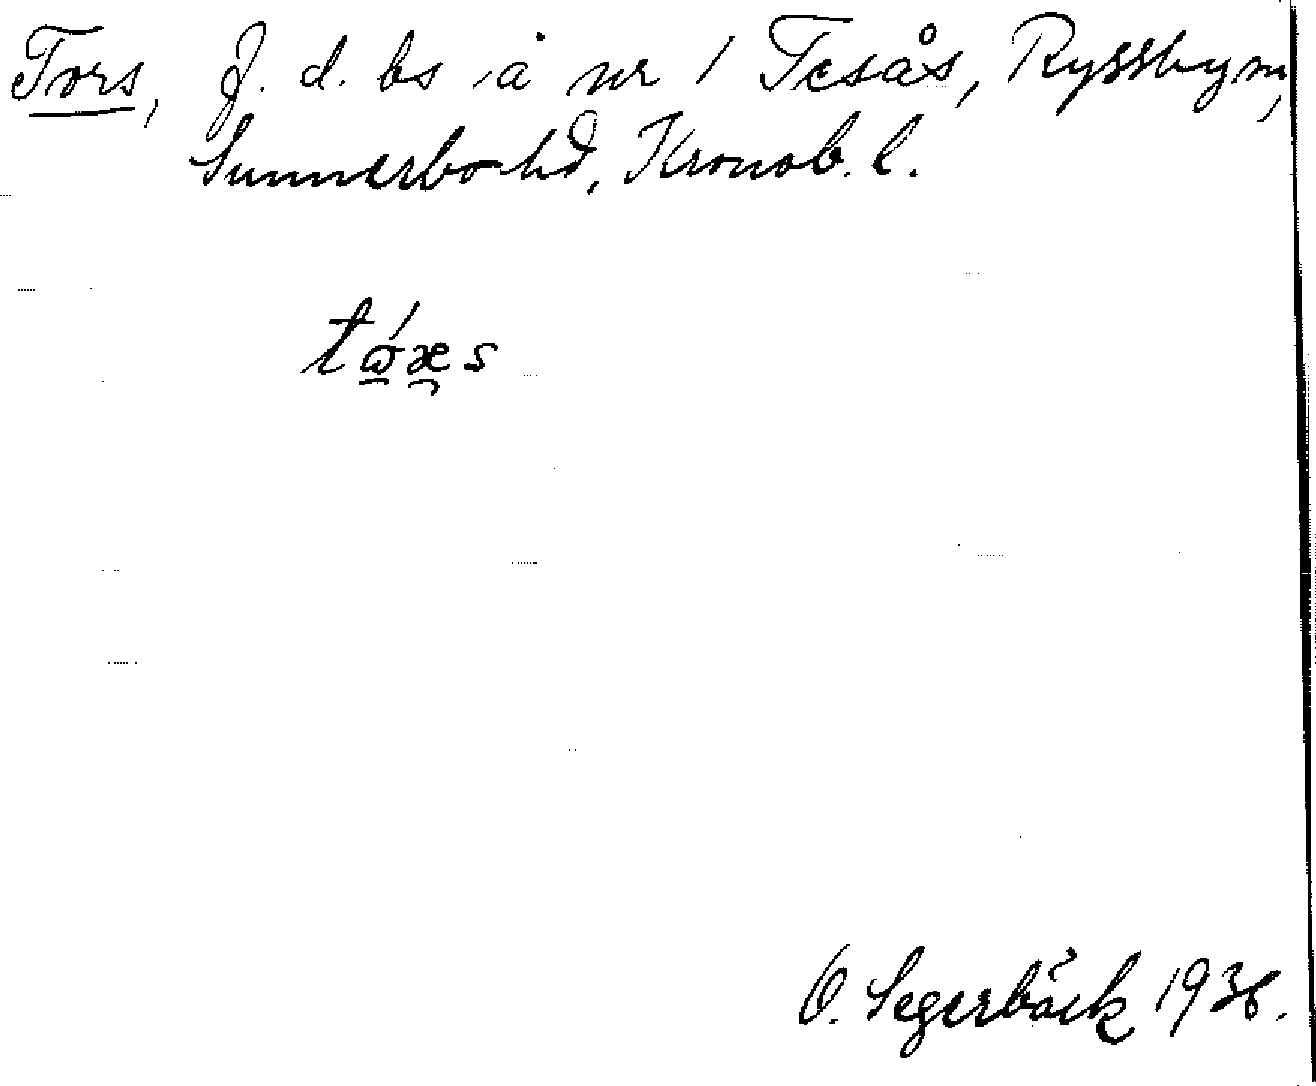 Tors, f. d. bs å nr 1 Tesås, Ryssby sn,
Sunnerbo hd, Kronob. l.
O. Segerbäck 1936.